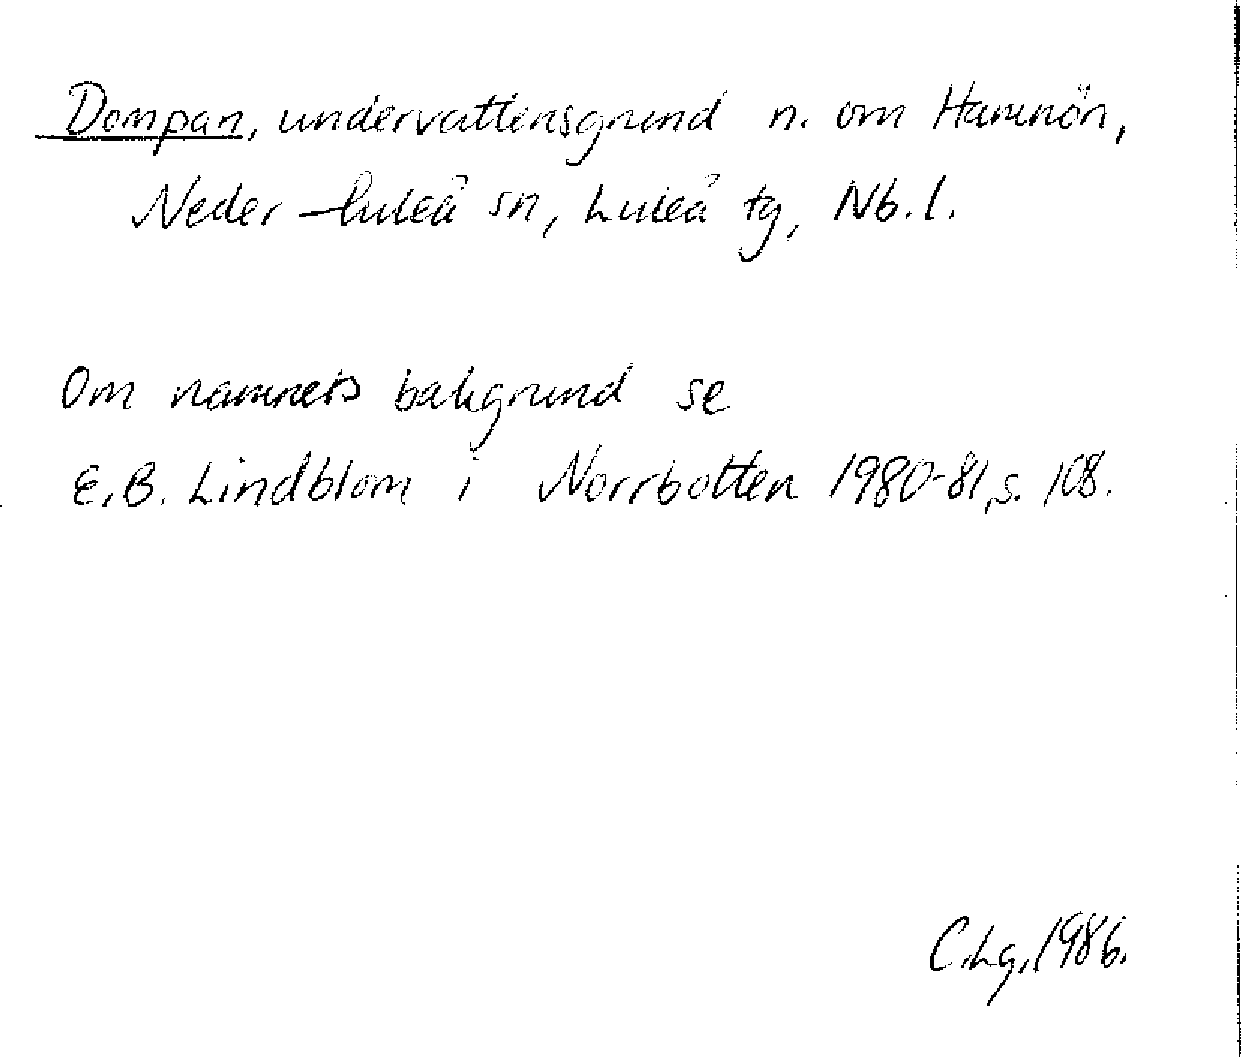 Dompan, undervattensgrund n. om Hamnön,
Neder-luleå sn, Luleå tg, Nb.l.
Om namnets bakgrund se
E.B. Lindblom i Norrbotten 1980-81, s. 108.
C.Lg, 1986.